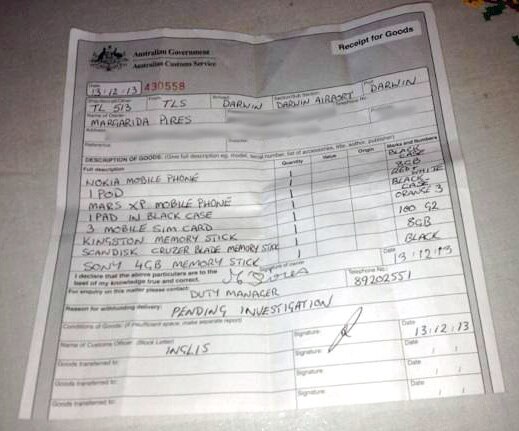 Australian Government
Australian Customs Service
Receipt for Goods
Date 13.12.13 430558
Port DARWIN
Directional Officer TL 513
From TLS
Branch DARWIN
Section/Sub section DARWIN AIRPORT
Name of Owner MARGARIDA PIRES
Telephone No
Address
Reference
DESCRIPTION OF GOODS: (Give full description eg. model, serial number, list of accessories, title, author, publisher)
Full description Quantity Value Origin Marks and Numbers
NOKIA MOBILE PHONE 1 BLACK CASE
IPOD 1 8GB
MARS XP MOBILE PHONE 1 RED WHITE
IPAD IN BLACK CASE 1 BLACK CASE
3 MOBILE SIM CARD 1 ORANGE 3
KINGSTON MEMORY STICK 1 100 G2
SCANDISK CRUZER BLADE MEMORY STICK 1 8GB
SONY 4GB MEMORY STICK 1 BLACK
I declare that the above particulars are to the
best of my knowledge true and correct.
Signature of owner
Date 13.12.13
For enquiry on this matter please contact:
DUTY MANAGER
Telephone No 89202551
Reason for withholding delivery:
PENDING INVESTIGATION
Conditions of Goods: (If insufficient space, make separate report)
Name of Customs Officer (Block Letter)
INGLIS
Signature:
Date 13.12.13
Goods transferred to:
Signature:
Date / /
Goods transferred to:
Signature:
Date / /
Goods transferred to:
Signature:
Date / /